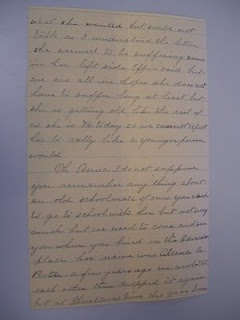 what she wanted but could not
talk as I understood the letter
she seemed to be suffering some
in her left side Effie said but
we are all in hopes she does not
have to suffer long at least but
she is getting old like the rest of
us she is 74 today so we cannot expect
her to rally like a younger person
would.
Oh Anna I do not suppose
you remember any thing about
an old schoolmate of ours you used
to go to school with her but not very
much but she used to come and see
you when you lived on the
place her name was
a few years ago we wrote to
each other then dropped it again
but at Christmas time this year I sent